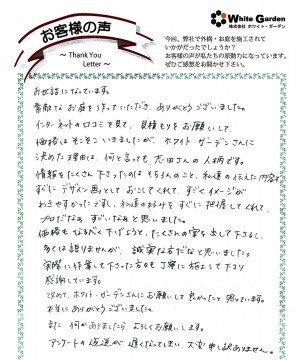 お客様の声
～ Thank You
Letter ～
White Garden
株式会社 ホワイト・ガーデン
今回、弊社で外構・お庭を施工されて
いかがだったでしょうか?
お客様の声が私たちの原動力になっています。
ぜひご感想をお聞かせ下さい。
お世話になっています。
素敵なお庭を作っていただき、ありがとうございました。
インターネットの口コミを見て、見積もりをお願いして、
価格はそこそこいきましたが、ホワイト・ガーデンさんに
決めた理由は、何と言っても、太田さんの人柄です。
情報をたくさん下さったのはもちろんのこと、私達の伝えた内容を
すぐにデザイン画としておこしてくれて、すごくイメージが
わきやすかったですし、私達の好みをすぐに把握してくれて、
プロだなぁ すごいなぁと思いました。
価格もなるべく下げようと、たくさんの案を出して下さるし、
多くは語りませんが、誠実な方だなと思いました。
実際に作業して下さった方々も丁寧に施工して下さり
感謝しています。
改めて、ホワイト・ガーデンさんにお願いして良かったと思っています。
本当にありがとうございました。
また、何かありましたらよろしくお願いします。
アンケートの返送が遅くなってしまい、大変申し訳ありません。